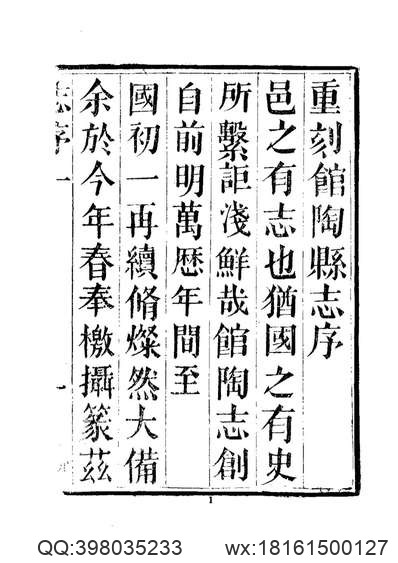 重刻館陶縣志序
邑之有志也猶國之有史
所繫詎淺鮮哉館陶志創
自前明萬厯年間至
國初一再續脩燦然大備
余於今年春奉檄攝篆茲
志序 一
1
QQ:398035233 wx:18161500127